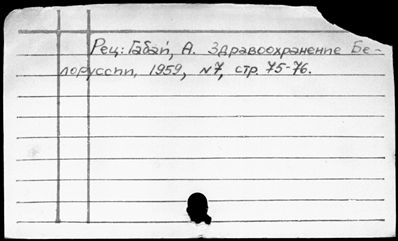 Рец: Габай, А. Здравоохранение Бе-
лоруссии, 1959, №7, стр. 75-76.